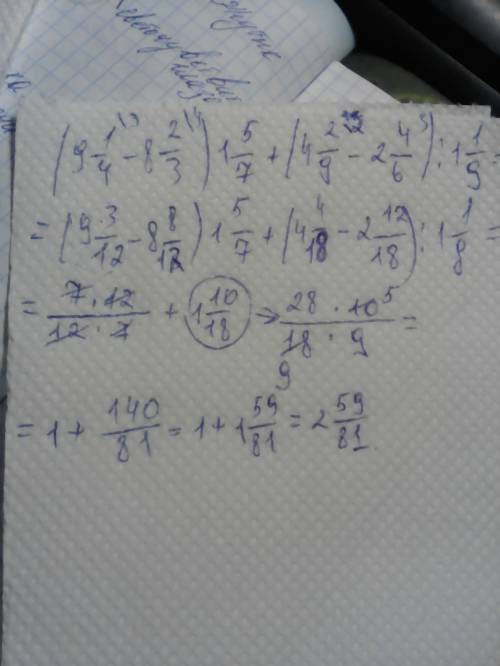 (9 1/4 \3 − 8 2/3 \4) 1 5/7 + (4 2/9 − 2 4/6 \3) : 1 1/9 =
= (9 3/12 − 8 8/12) 1 5/7 + (4 4/18 − 2 12/18) : 1 1/8 =
= 7 · 12 / 12 · 7 + 1 10/18 → 28 · 10 5 / 18 9 · 9 =
= 1 + 140/81 = 1 + 1 59/81 = 2 59/81